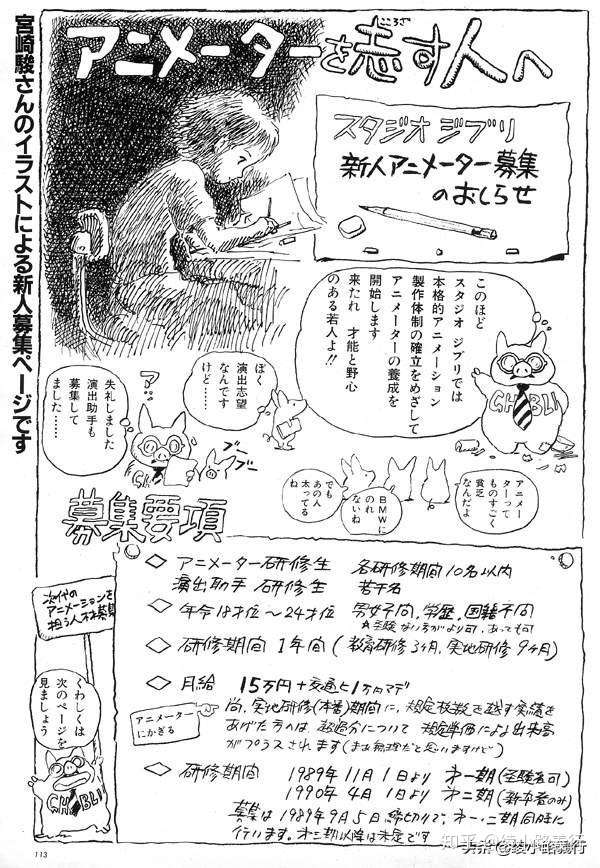 宮崎駿さんのイラストによる新人募集ページです
アニメーターを志す人へ
こころざ
スタジオ ジブリ
新人アニメーター募集
のおしらせ
このほど
スタジオ ジブリでは
本格的アニメーション
製作体制の確立をめざして
アニメーターの養成を
開始します
来たれ 才能と野心
のある若人よ!!
GHIBLI
ぼく
演出志望
なんです
けど……
ア…?
失礼しました
演出助手も
募集して
ました……
ブー
ブー
アニメー
ターって
ものすごく
貧乏
なんだよ
BMWに
のれ
ないね
でも
あの人
太ってる
ね
募集要項
次代の
アニメーションを
担う人材募集
くわしくは
次のページを
見ましょう
GHIBLI
◇ アニメーター研修生 各研修期間10名以内
演出助手 研修生 若干名
◇ 年令18才位〜24才位 男女不問、学歴、国籍不問
◇ 研修期間 1年間(教育研修3ヶ月、実地研修9ヶ月)
◇ 月給 15万円+交通ヒ1万円マデ
アニメーター
にかぎる
尚、実地研修(本番)期間に、規定枚数を越す実績を
あげた方へは、超過分について 規定単価により出来高
がプラスされます(まず無理だと思いますけど)
◇ 研修期間 1989年11月1日より 才一期(経験者可)
1990年4月1日より 才二期(新卒者のみ)
募集は1989年9月5日締切りで、才一・二期同時に
行います。才三期以降は未定です
113
知乎 @綾小路葦行
头条 @綾小路葦行